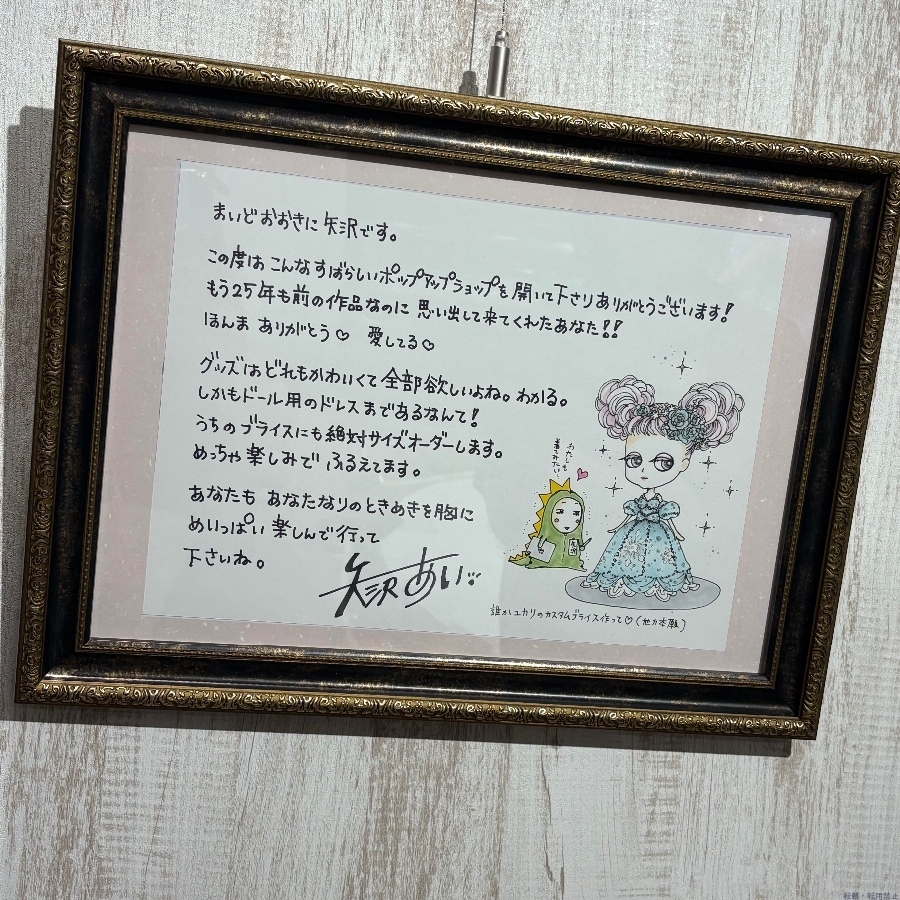 まいど おおきに 矢沢です。
この度は こんな すばらしい ポップアップショップを 開いて下さり ありがとうございます!
もう25年も前の作品なのに 思い出して来てくれたあなた!!
ほんま ありがとう♡ 愛してる♡
グッズは どれもかわいくて 全部欲しいよね。わかる。
しかもドール用のドレスまであるなんて!
うちのブライスにも絶対サイズオーダーします。
めっちゃ楽しみで ふるえてます。
あなたも あなたなりのときめきを胸に
めいっぱい 楽しんで行って
下さいね。
矢沢あい
わたしも
着てみたい
誰かユカリのカスタムブライス作って♡(他力本願)
転載・転用禁止